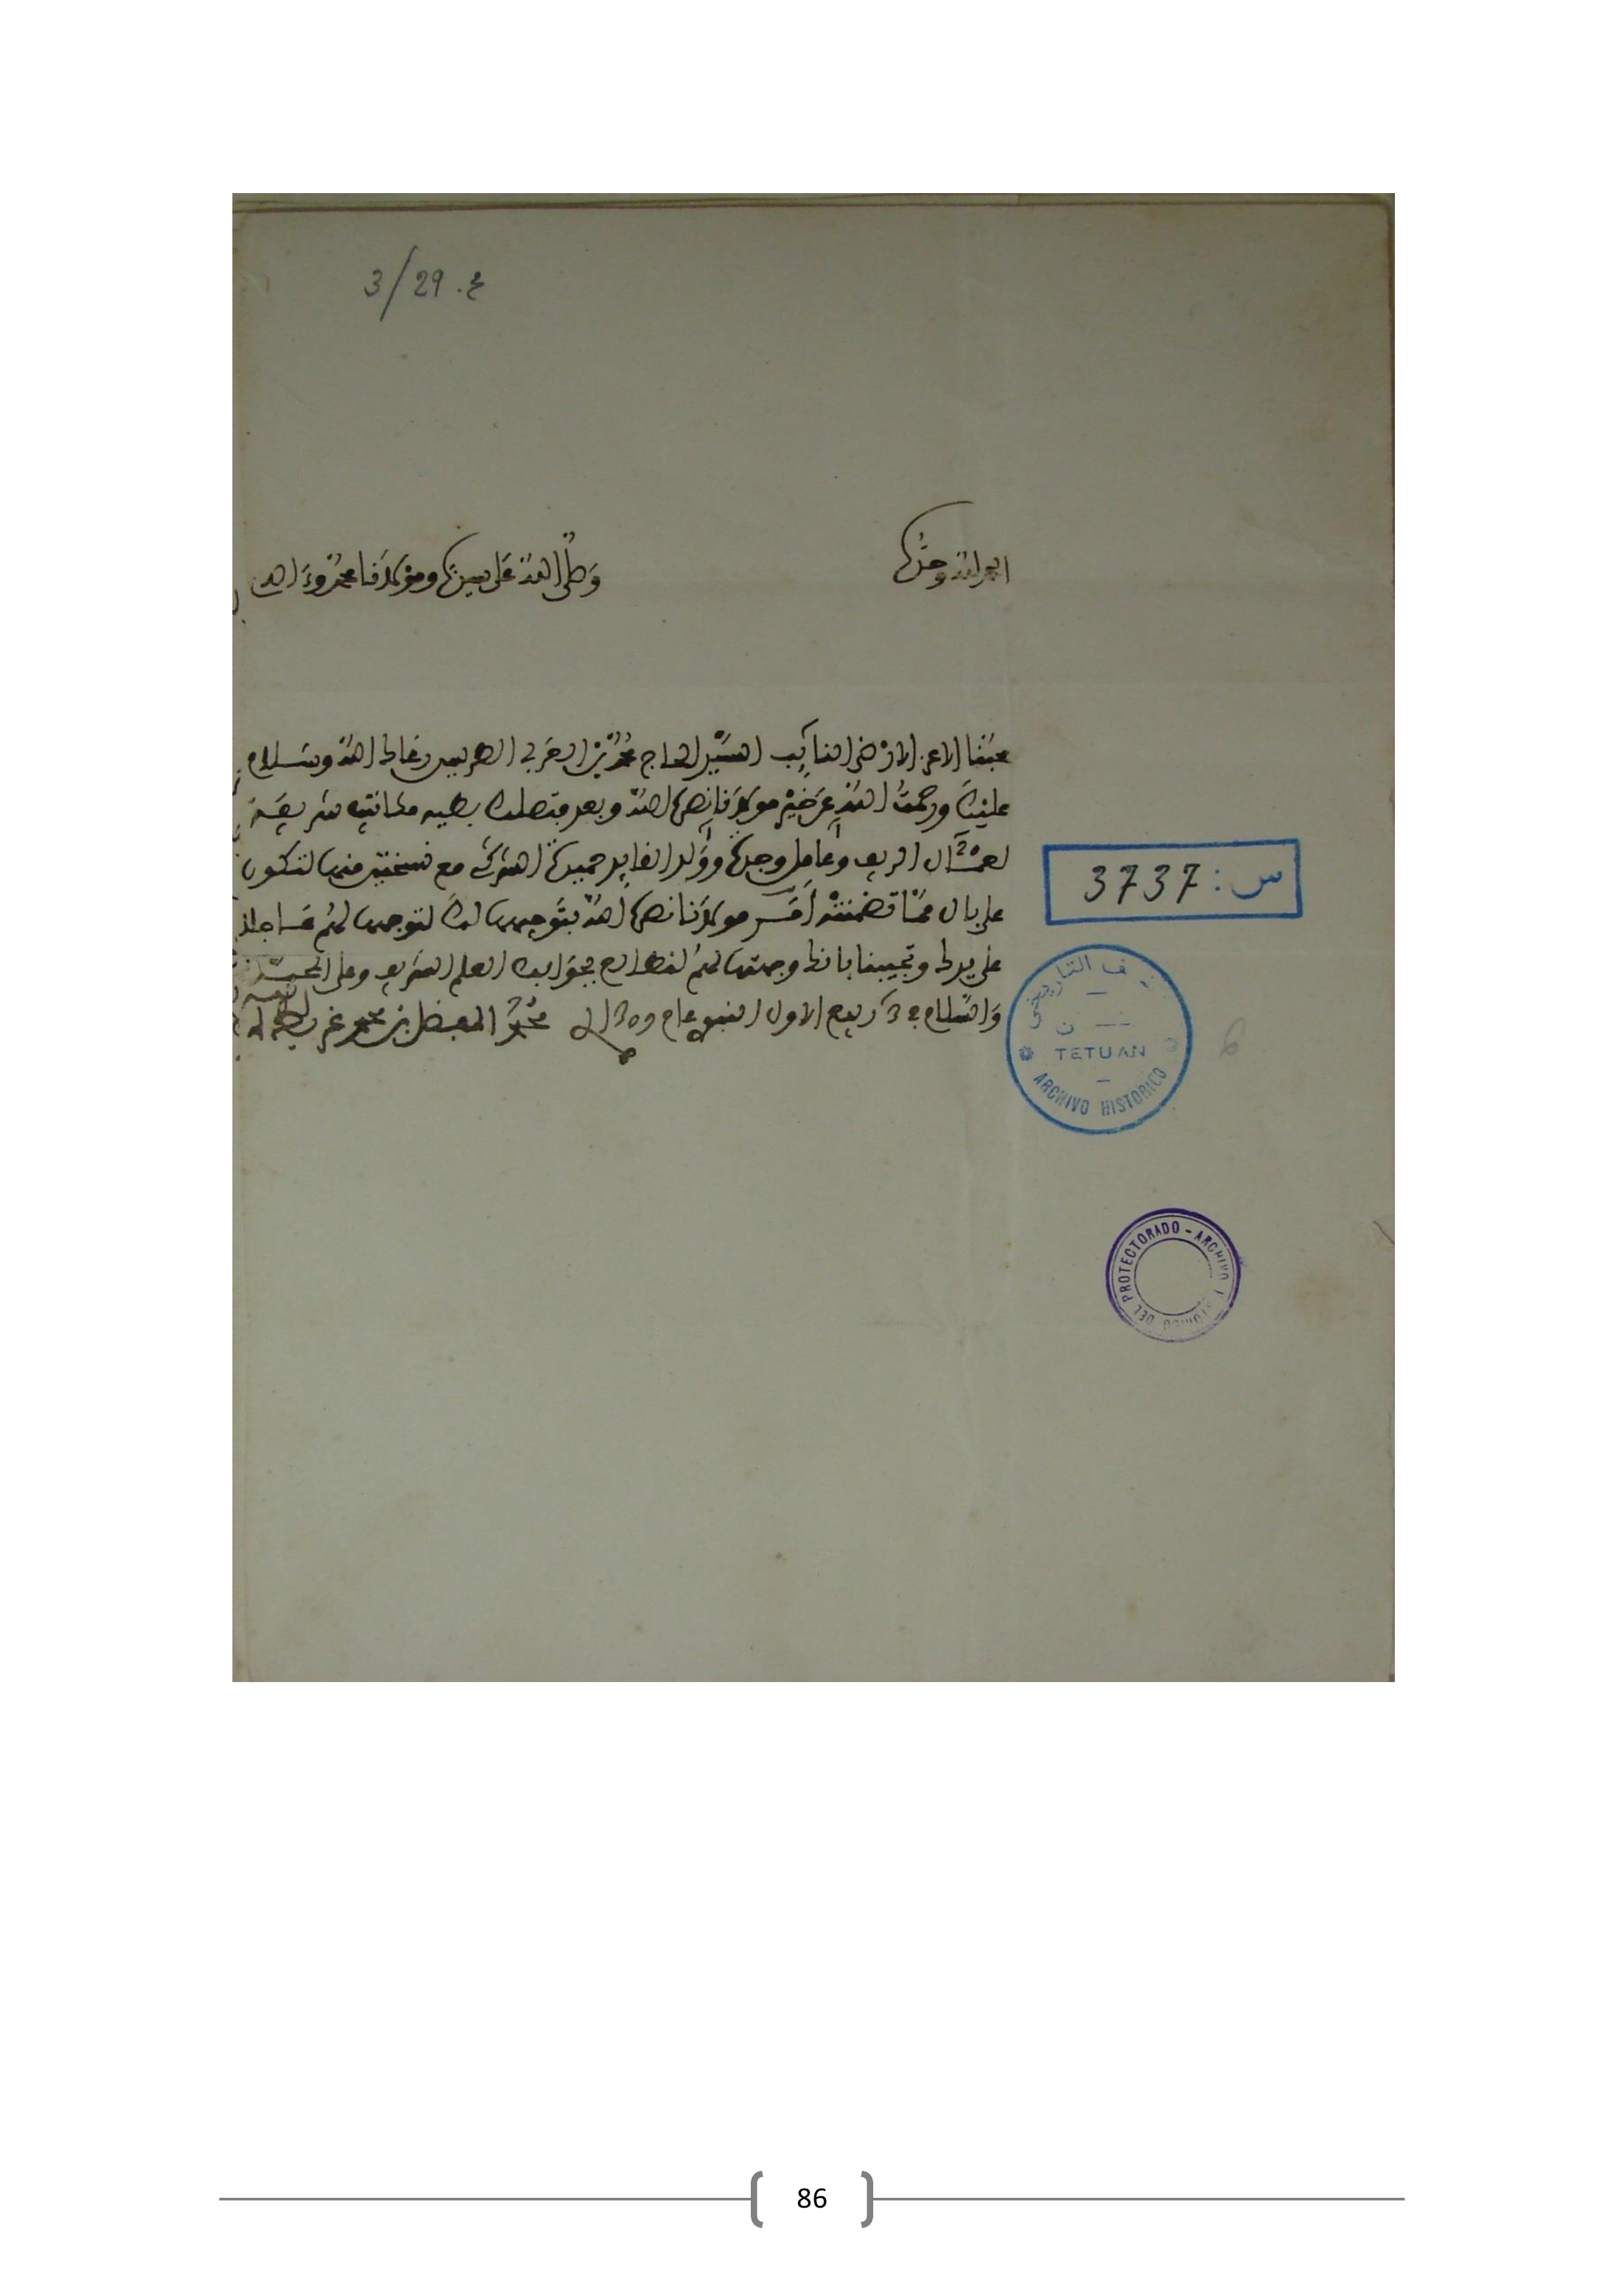 3/29 ع.
الحمد لله وحده
وصلى الله على سيدنا ومولانا محمد وءاله
محبنا الاعز الارضى النائب السيد الحاج محمد بن العربي الطريس رعاك الله وسلام
عليك ورحمت الله عن خير مولانا نصره الله وبعد فتصلك طيه مكاتيب شريفة
لعمال الريف وعامل وجدة وولد القايد حميدة الشركي مع نسختين منها لتكون
على بال مما تضمنته أمر مولانا نصره الله بتوجيهها لك لتوجهها لهم
على يدك وتجيبنا بانك وجهتها لهم بجوابك العلم الشريف وعلى المحبة
والسلام في ربيع الاول النبوي عام محمد المفضل بن محمد غريط
س: 3737
TETUAN
ARCHIVO HISTORICO
DEL PROTECTORADO - ARCHIVO
86